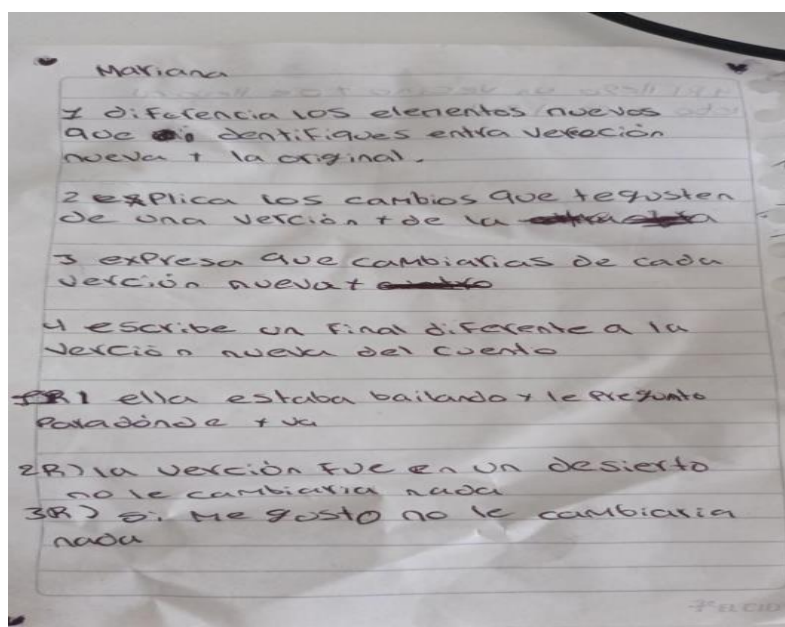 Mariana
1 diferencia los elementos nuevos
que identifiques entra verección
nueva y la original.
2 explica los cambios que tegusten
de una verción y de la
3 expresa que cambiarias de cada
verción nueva y
4 escribe un final diferente a la
verción nueva del cuento
R1 ella estaba bailando y le pregunto
paradónde y va
2R) la verción fue en un desierto
no le cambiaria nada
3R) si me gusto no le cambiaria
nada